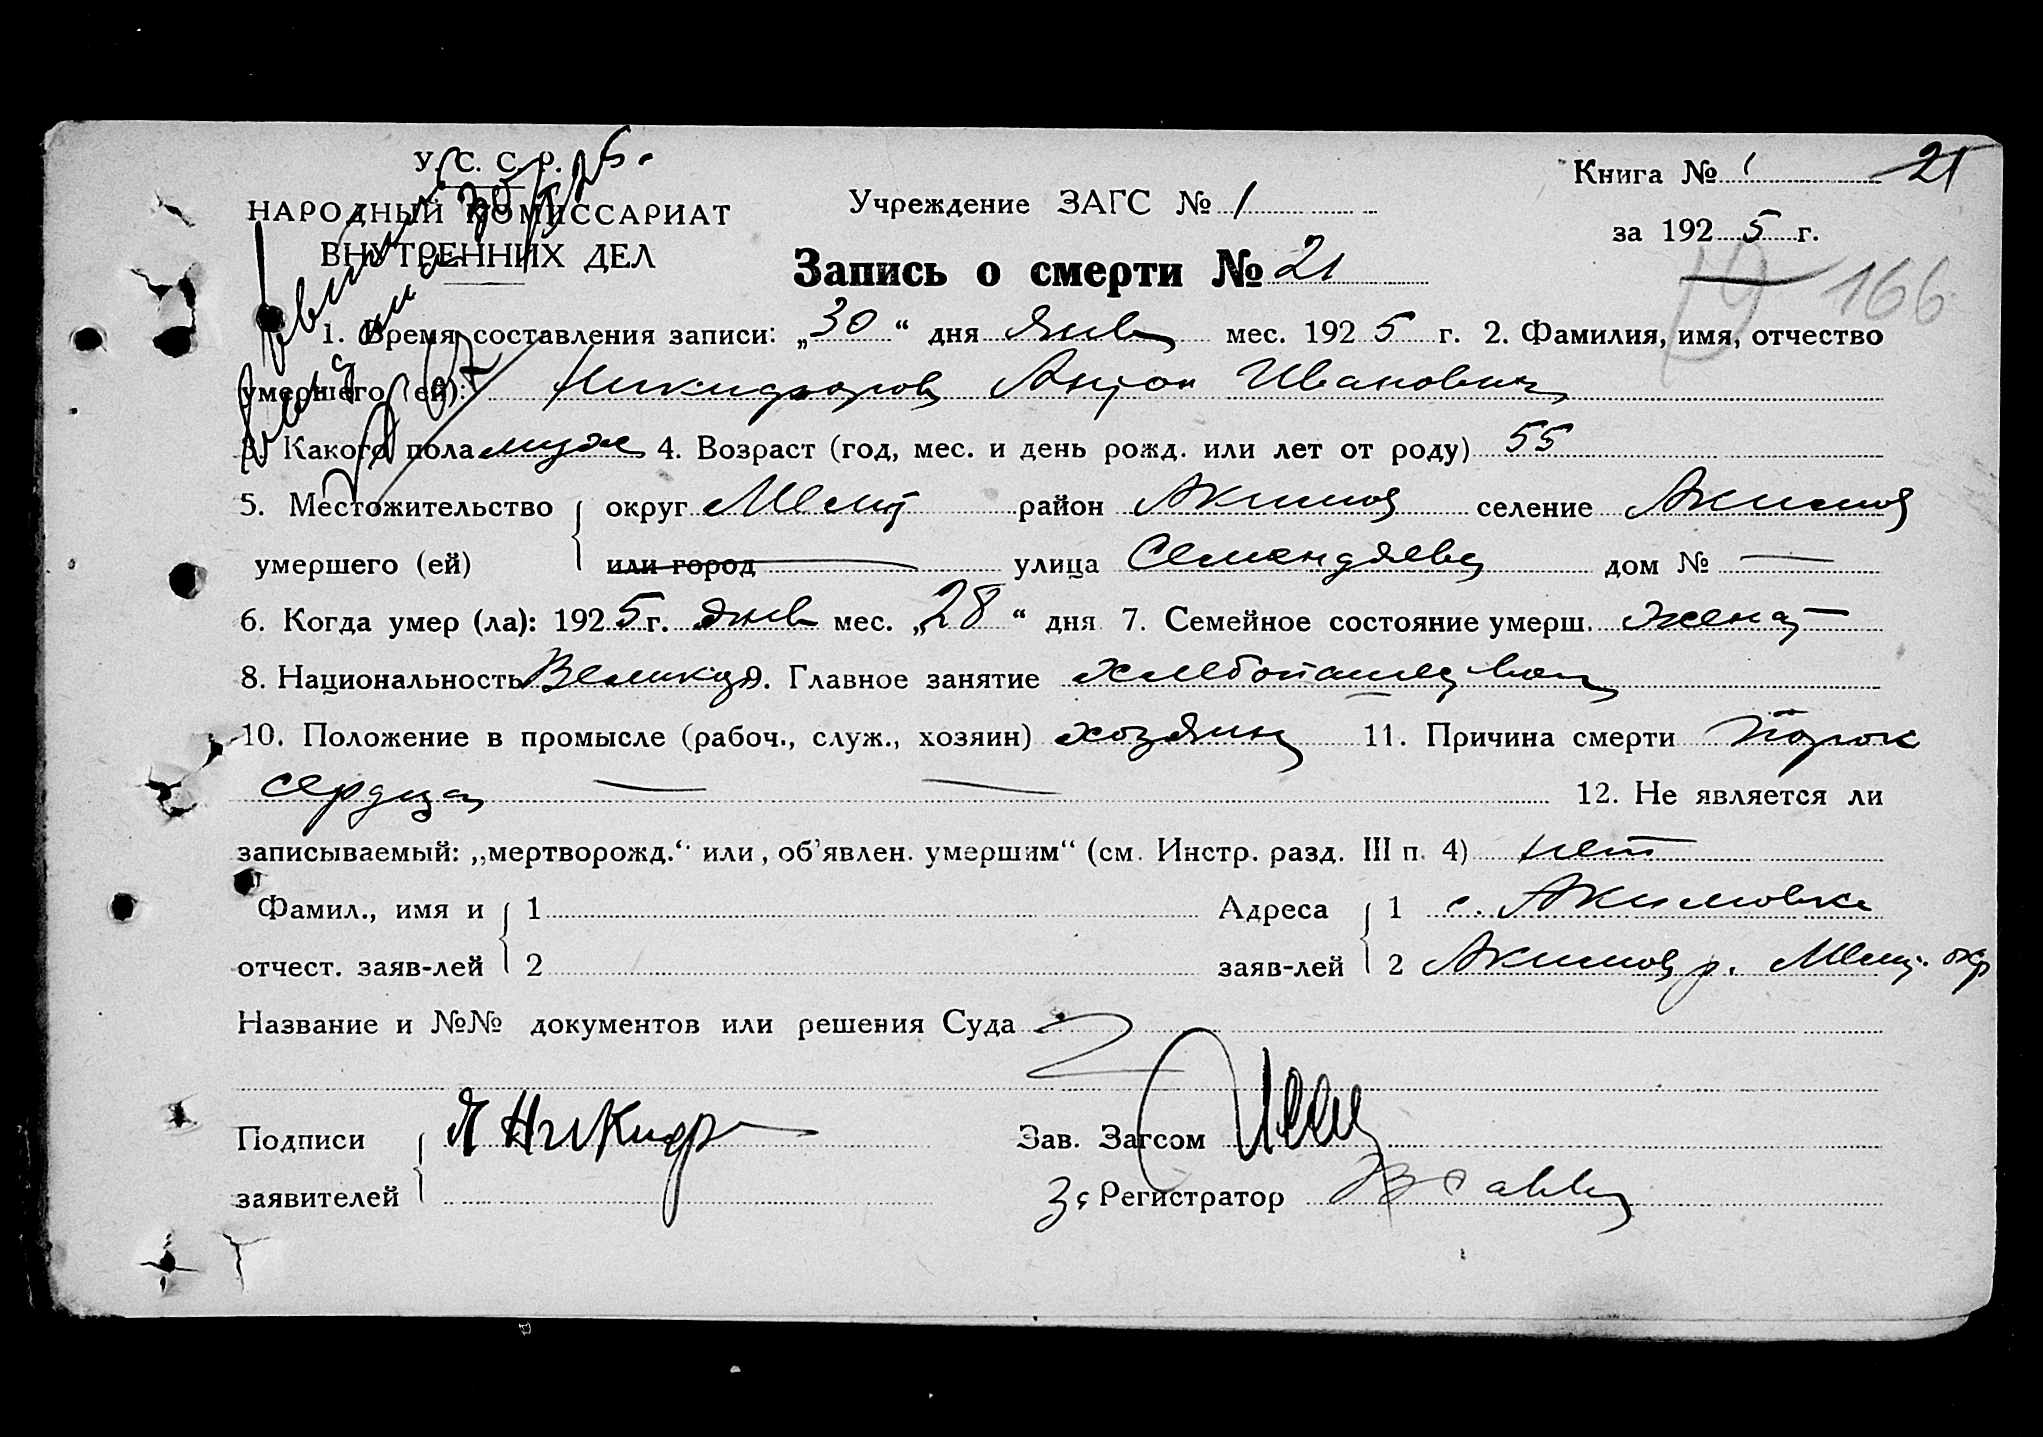 У. С. С. Р.
НАРОДНЫЙ КОМИССАРИАТ
ВНУТРЕННИХ ДЕЛ
Учреждение ЗАГС № 1
Книга № 1 21
за 1925 г.
Запись о смерти № 21
166
1. Время составления записи: „30“ дня янв мес. 1925 г. 2. Фамилия, имя, отчество
умершего (ей): Никифоров Антон Иванович
3. Какого пола муж 4. Возраст (год, мес. и день рожд. или лет от роду) 55
5. Местожительство округ Мелит район Акимов селение Акимов
умершего (ей) или город улица Семендяева дом № —
6. Когда умер (ла): 1925 г. янв мес. „28“ дня 7. Семейное состояние умерш. женат
8. Национальность Великор 9. Главное занятие хлебопашество
10. Положение в промысле (рабоч., служ., хозяин) хозяин 11. Причина смерти Порок
сердца — — 12. Не является ли
записываемый: „мертворожд.“ или „об'явлен. умершим“ (см. Инстр. разд. III п. 4) нет
Фамил., имя и 1 Адреса 1 с. Акимовка
отчест. заяв-лей 2 заяв-лей 2 Акимов р. Мелит. окр
Название и №№ документов или решения Суда
Подписи Я Никиф Зав. Загсом
заявителей За Регистратор